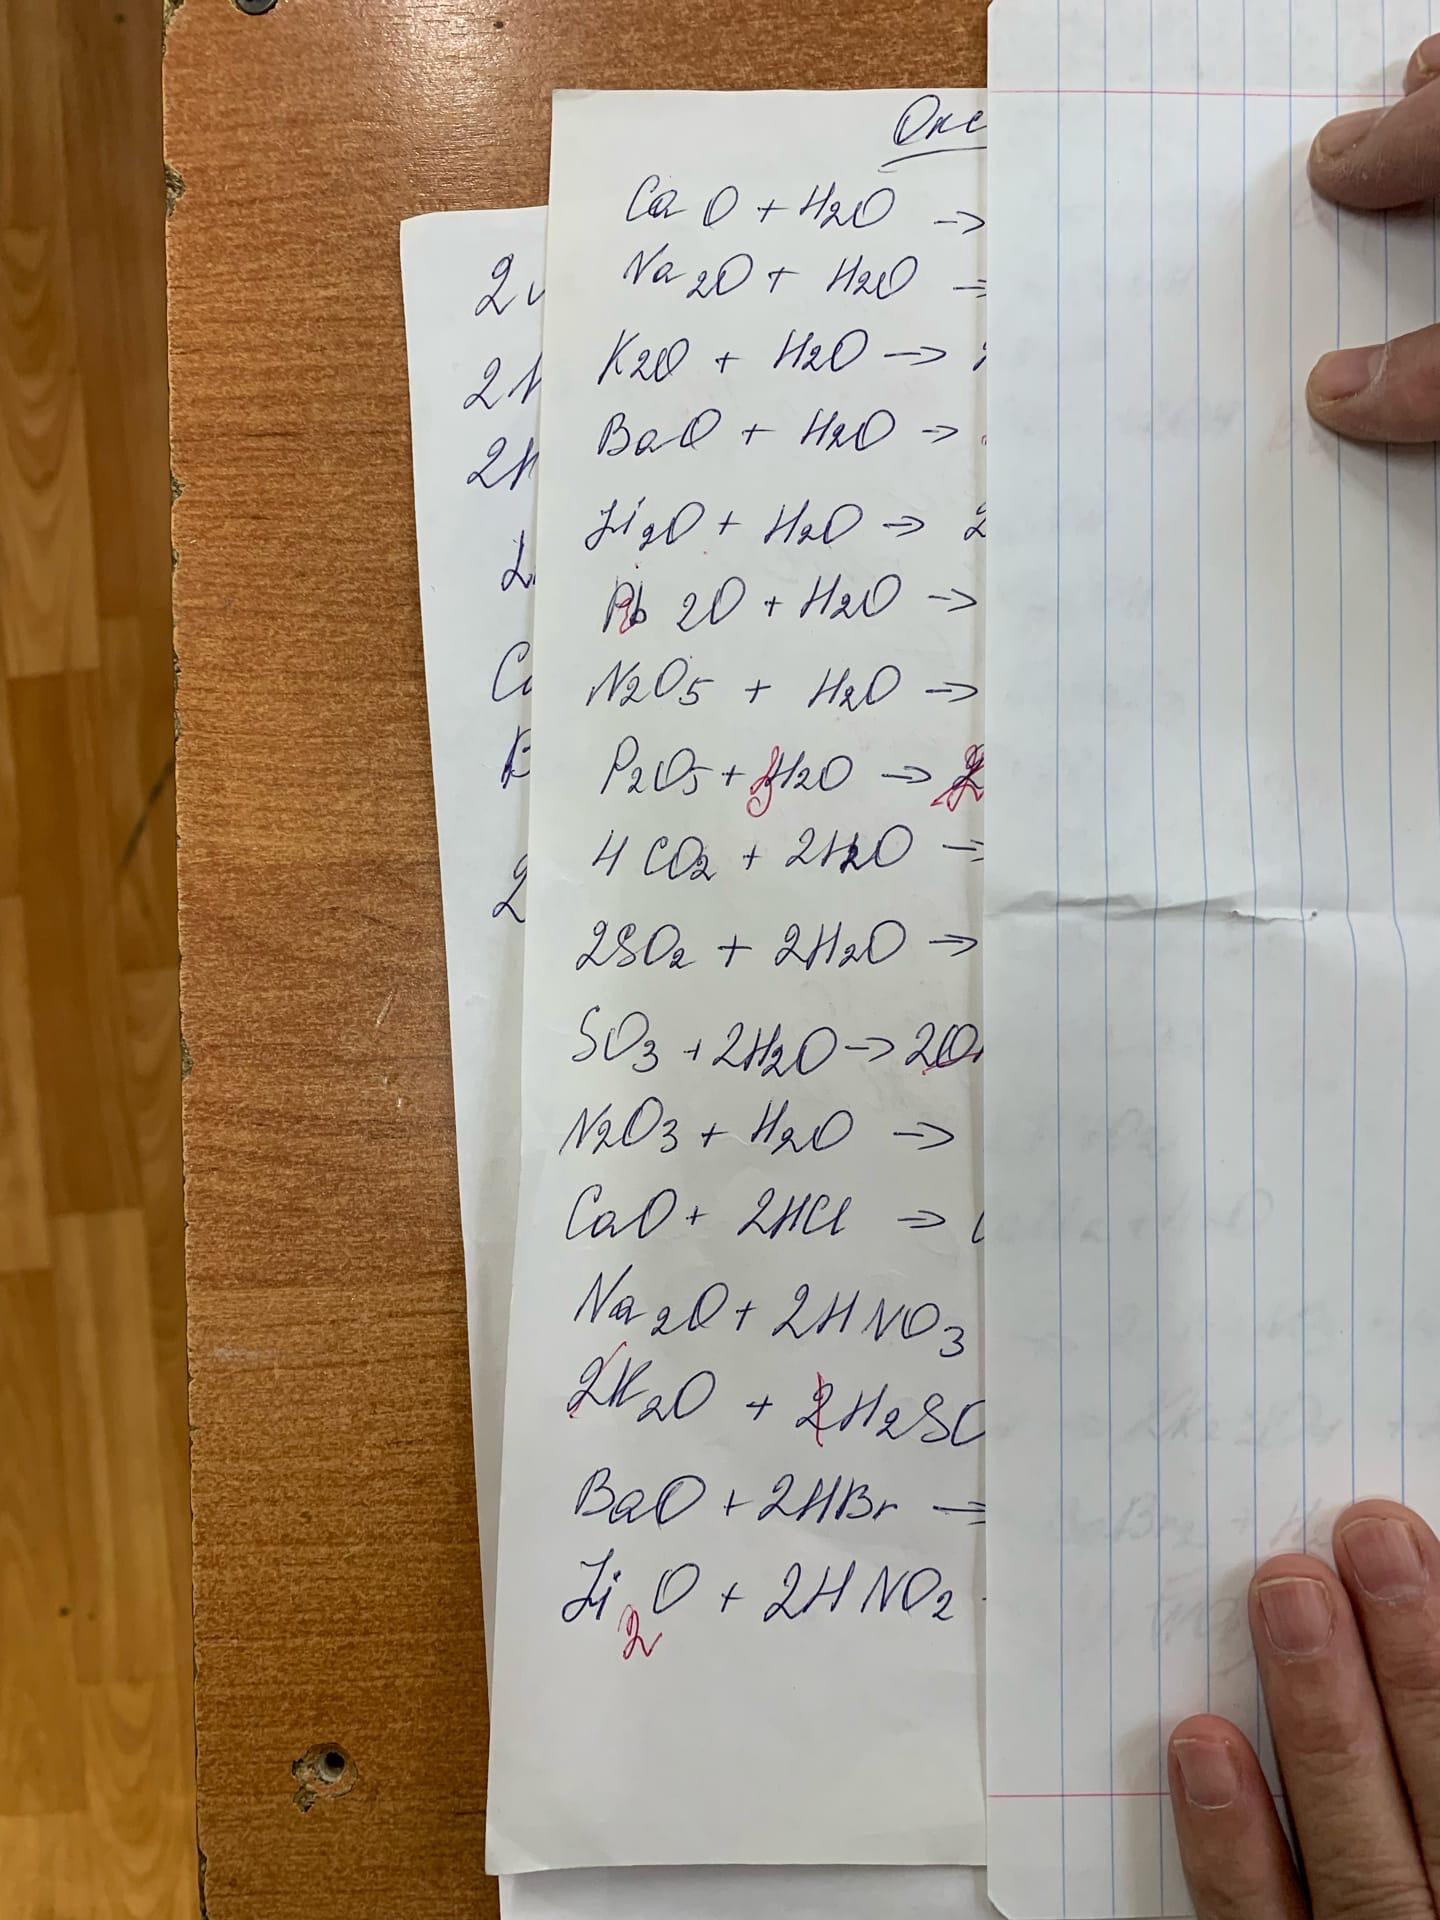 CaO + H2O →
Na2O + H2O →
K2O + H2O →
BaO + H2O →
Li2O + H2O → 2
Rb2O + H2O →
N2O5 + H2O →
P2O5 + 3H2O → 2
4CO2 + 2H2O →
2SO2 + 2H2O →
SO3 + 2H2O → 2
N2O3 + H2O →
CaO + 2HCl →
Na2O + 2HNO3
2K2O + 2H2SO
BaO + 2HBr →
Li2O + 2HNO2